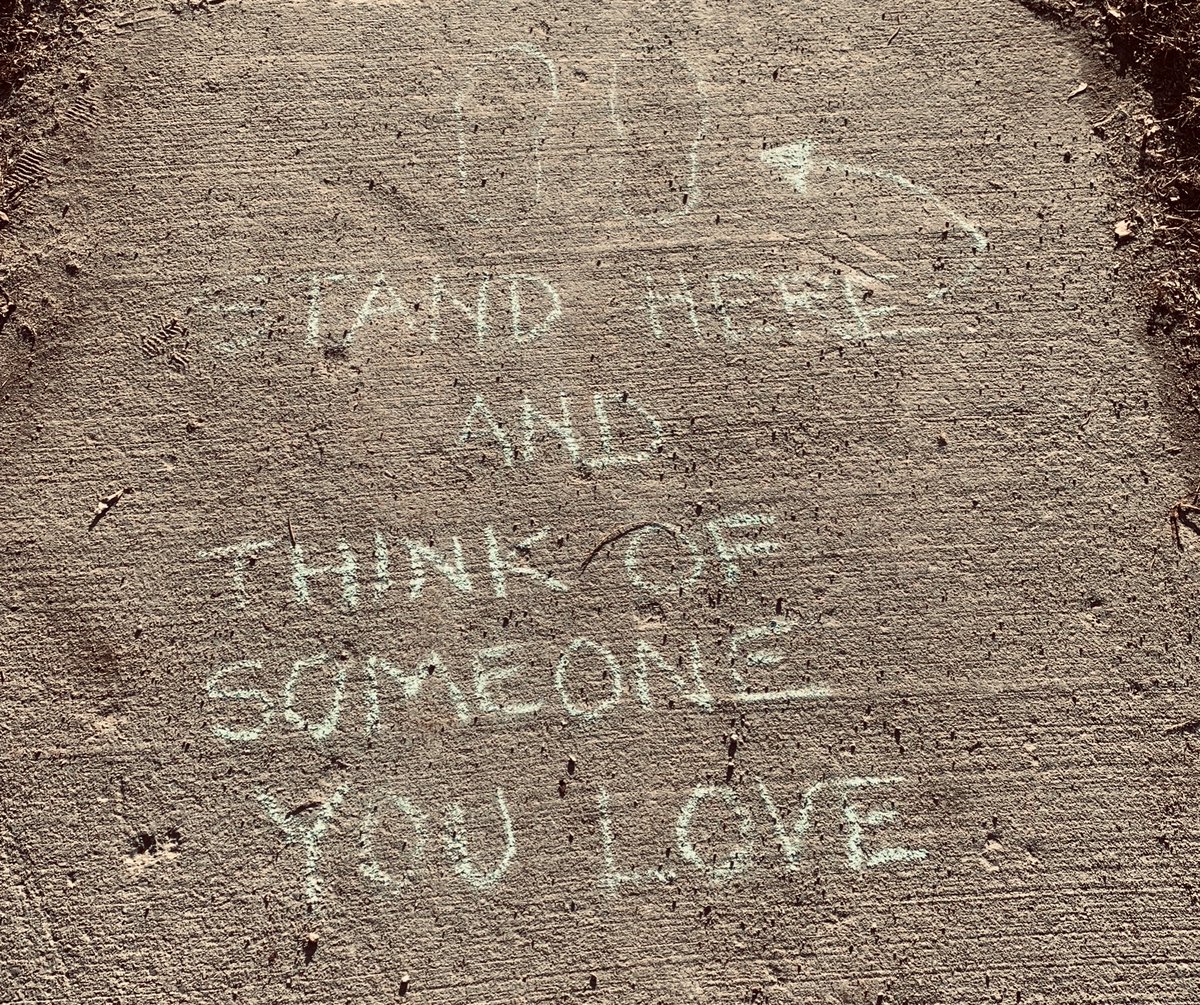 STAND HERE
AND
THINK OF
SOMEONE
YOU LOVE